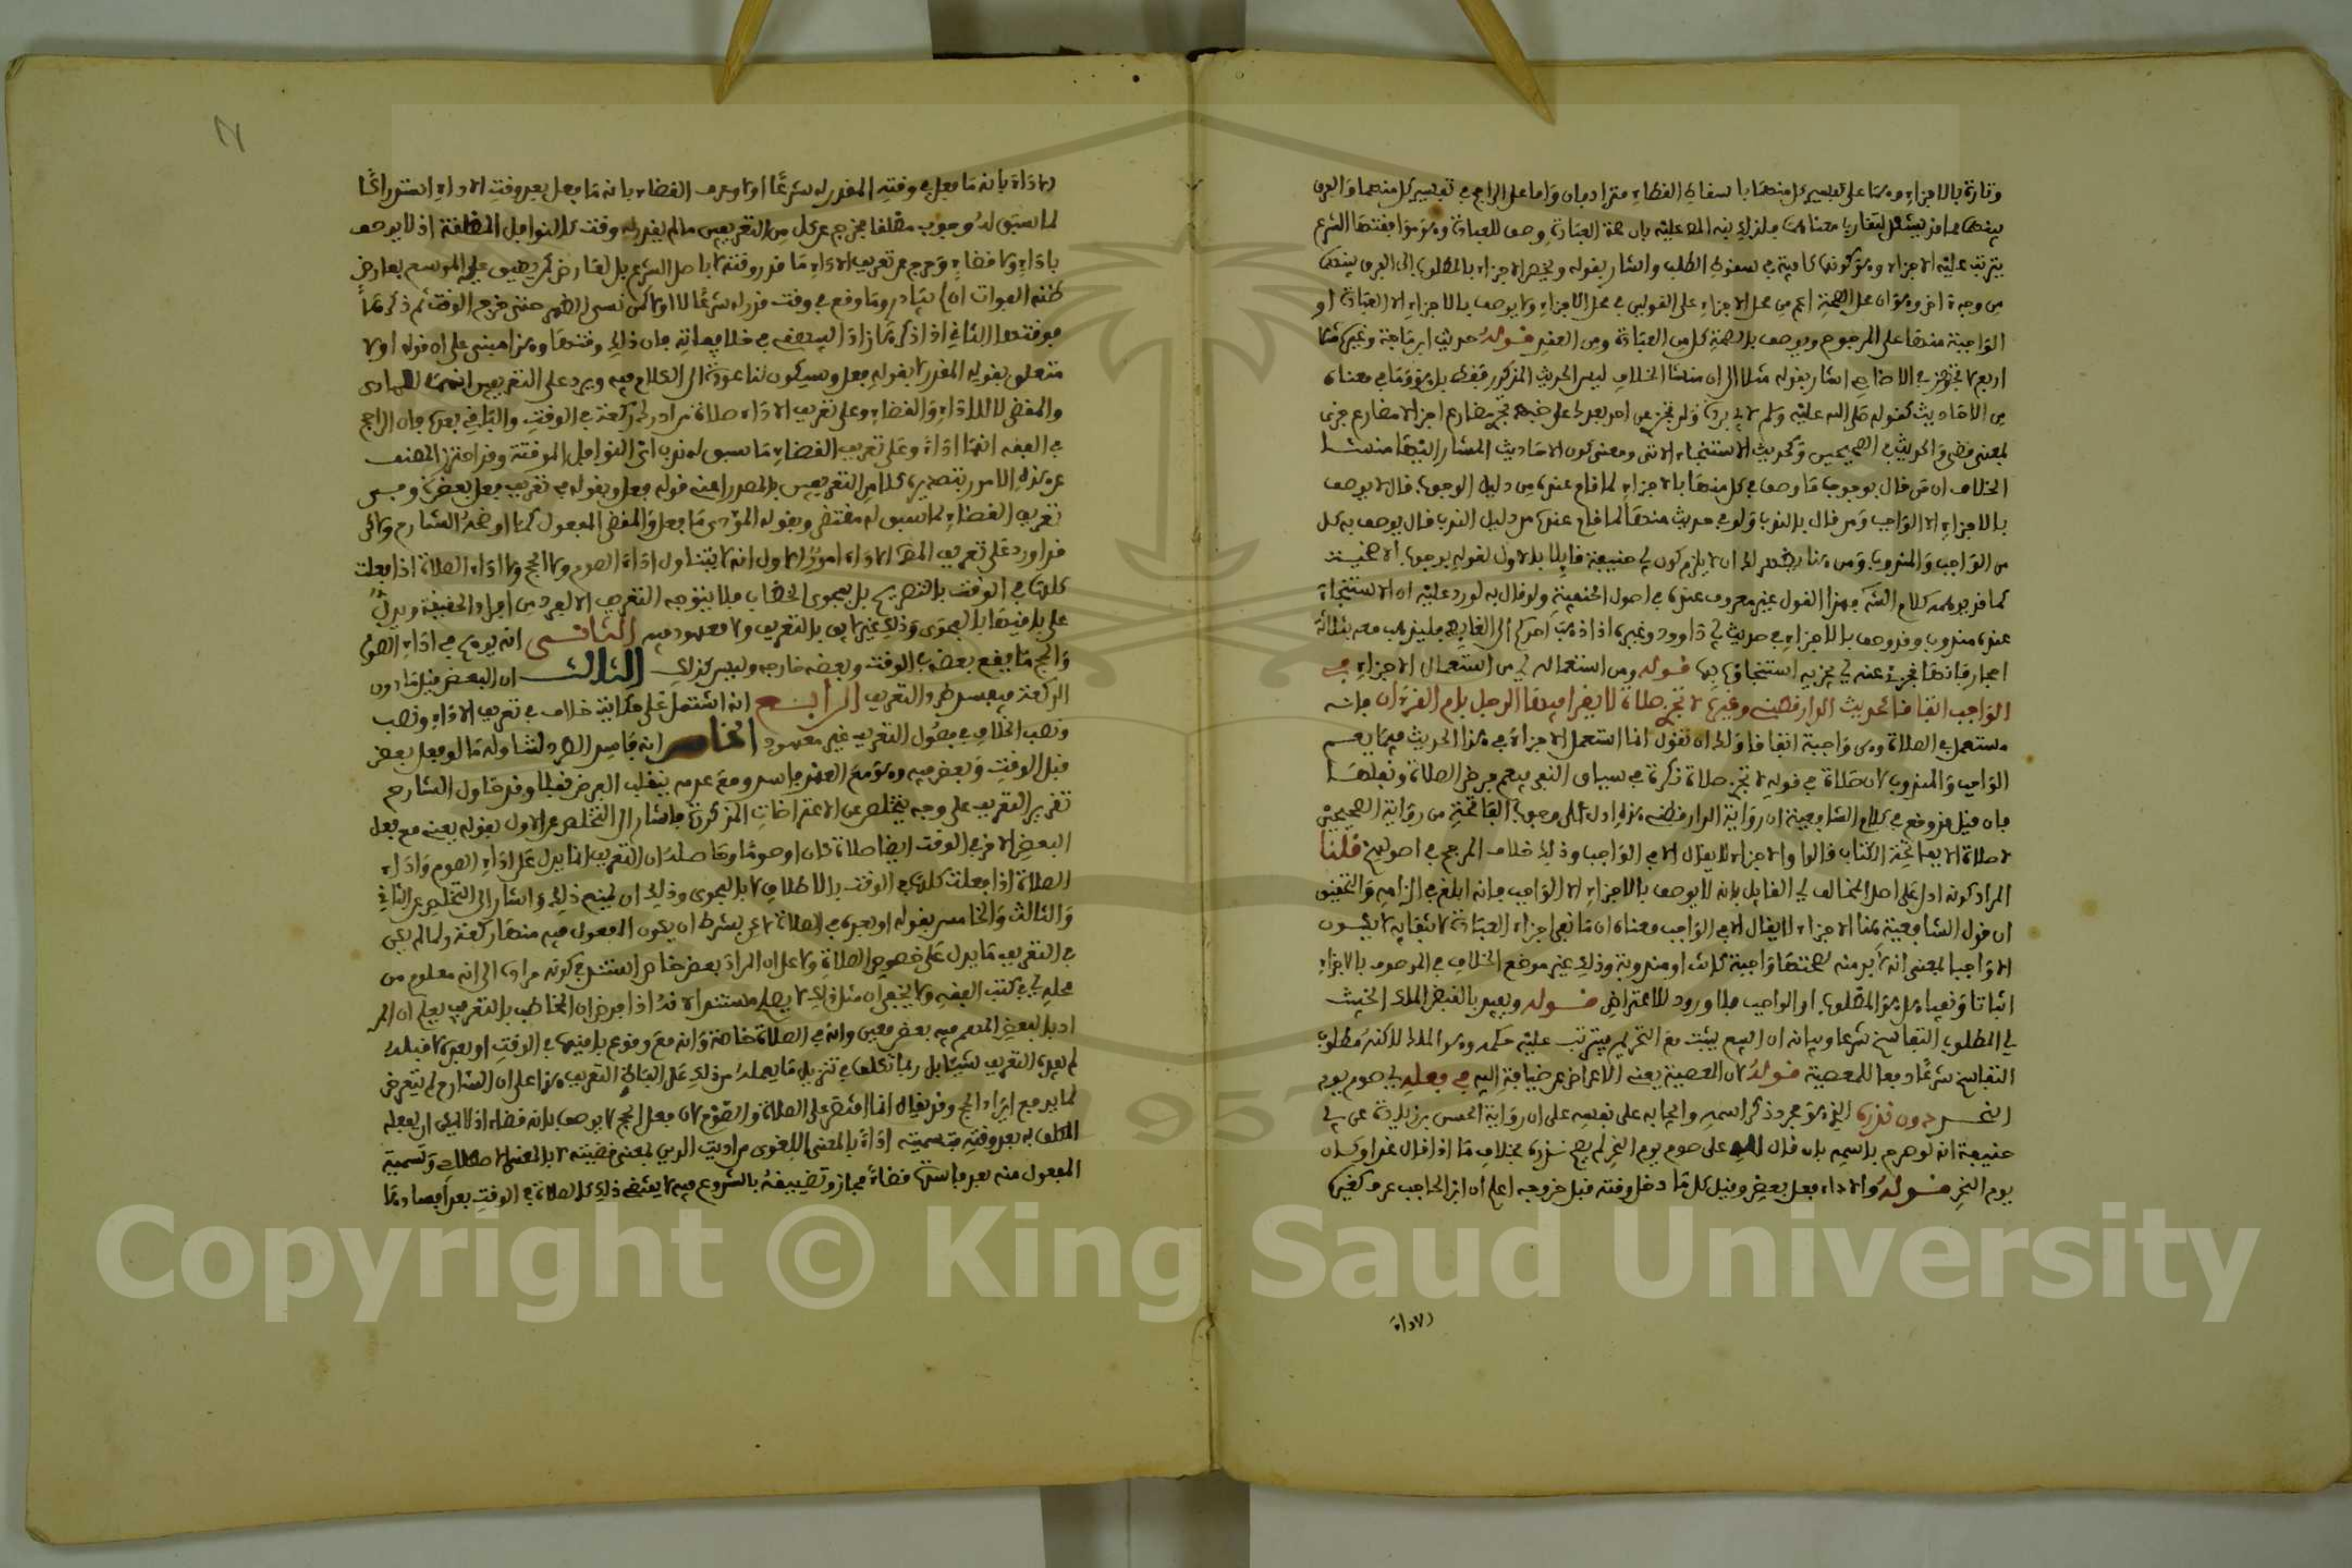 وتارة بالاجزاء وهما على تفسير كل منهما باسقاط القضاء مترادفان واما على الراجح في تفسير كل منهما والفرق
بينهما قد يشكل لتقارب معناهما فلذلك نبه المص عليه بان صحة العبادة وصف للعبادة وهو موافقتها الشرع
يترتب عليه الاجزاء وهو كونها كافية في سقوط الطلب واشار بقوله ويختص الاجزاء بالمطلوب الى الفرق بينهما
من وجه اخر وهو ان محل الصحة اعم من محل الاجزاء على القولين في محل الاجزاء ولا يوصف بالاجزاء الا العبادة او
الواجبة منها على المرجوح ويوصف بالصحة كل من العبادة ومن العقد قوله حديث ابن ماجة وغيره مثلا
اربع لا تجزئ في الاضاحي اشار بقوله مثلا الى ان منشا الخلاف ليس الحديث المذكور فقط بل هو وما في معناه
من الاحاديث كقوله صلى الله عليه وسلم لابي بردة ولن تجزئ عن احد بعدك
بمعنى قضى والحديث في الصحيحين وكحديث الاستنجاء الاتي ومعنى كون الاحاديث المشار اليها منشا
الخلاف ان من قال بوجوب ما وصف في كل منها بالاجزاء لما قام عنده من دليل الوجوب قال لا يوصف
بالاجزاء الا الواجب ومن قال بالندب ولو في حديث منها لما قام عنده من دليل الندب قال يوصف به كل
من الواجب والمندوب ومن هنا يظهر لك ان لا يلزم كون ابي حنيفة قايلا بالاول لقوله بوجوب الاضحية
كما قد يوهمه كلام الش فهذا القول غير معروف عنده في اصول الحنفية ولو قال به لورد عليه ان الاستنجاء
عنده مندوب وقد وصف بالاجزاء في حديث ابي داوود وغيره اذا ذهب احدكم الى الغايط فليذهب معه بثلاثة
احجار فانها تجزئ عنه اي تجزيه استنجاؤه بها قوله ومن استعماله اي من استعمال الاجزاء في
الواجب اتفاقا حديث الدارقطني وغيره لا تجزئ صلاة لا يقرا فيها الرجل بام القرءان فانه
مستعمل في الصلاة وهي واجبة اتفاقا ولك ان تقول انما استعمل الاجزاء في هذا الحديث فيما يعم
الواجب والمندوب لان صلاة في قوله لا تجزئ صلاة نكرة في سياق النفي فيعم فرض الصلاة ونفلها
فان قيل قد وقع في كلام الشافعية ان رواية الدارقطني هذه ادل على وجوب الفاتحة من رواية الصحيحين
لا صلاة الا بفاتحة الكتاب قالوا والاجزاء لا يقال الا في الواجب وذلك خلاف المرجح في اصولهم قلنا
المراد كونه ادل على اصل المخالف اي القايل بانه لا يوصف بالاجزاء الا الواجب فانه ابلغ في الزامه والتحقيق
ان قول الشافعية هنا الاجزاء لا يقال الا في الواجب معناه ان ما نفي اجزاء العبادة لانتفايه لا يكون
الا واجبا بمعنى انه لا بد منه لصحتها واجبة كانت او مندوبة وذلك غير موضع الخلاف في الموصوف بالاجزاء
اثباتا ونفيا هل هو المطلوب او الواجب فلا ورود للاعتراض قوله ويفيد بالقبض الملك الخبيث
اي المطلوب التفاسخ شرعا وبيانه ان البيع يثبت مع التحريم فيترتب عليه حكمه وهو الملك لاكنه مطلوب
التفاسخ شرعا دفعا للمعصية قوله لان المعصية يعني الاعراض عن ضيافة الله في فعله اي صوم يوم
النحر دون نذره الذي هو مجرد ذكر اسمه وايجابه على نفسه على ان رواية الحسن بن زياد عن ابي
حنيفة انه لو صرح باسمه بان قال لله علي صوم يوم النحر لم يصح نذره بخلاف ما اذا قال غدا وكان
يوم النحر قوله والاداء فعل بعض وقيل كل ما دخل وقته قبل خروجه اعلم ان ابن الحاجب عرف كغيره
الاداء
الاداء بانه ما فعل في وقته المقدر له شرعا اولا وعرف القضاء بانه ما فعل بعد وقت الاداء استدراكا
لما سبق له وجوب مطلقا فخرج عن كل من التعريفين ما لم يقدر له وقت كالنوافل المطلقة اذ لا يوصف
باداء ولا قضاء وخرج عن تعريف الاداء ما قدر وقته لا باصل الشرع بل لعارض كمن ضيق عليه الموسع بعارض
ظنه الفوات ان لم يبادر وما وقع في وقت قدر له شرعا لا اولا كمن نسي الظهر حتى خرج الوقت ثم ذكرها
فوقتها الثاني اذا ذكرها زاد البيهقي في خلافياته فان ذلك وقتها وهذا مبني على ان قوله اولا
متعلق بقوله المقدر لا بقوله فعل وسيكون لنا عودة الى الكلام فيه ويرد على التعريفين انهما للمؤدى
والمقضي لا للاداء والقضاء وعلى تعريف الاداء صلاة من ادرك ركعة في الوقت والباقي بعده فان الراجح
في الفقه انها اداء وعلى تعريف القضاء ما سبق له ندب اي النوافل الموقتة وقد احترز المصنف
عن هذه الامور بتصديره كلا من التعريفين بالمصدر اعني قوله فعل وبقوله في تعريف فعل بعض وفي
تعريف القضاء لما سبق له مقتض وبقوله المؤدى ما فعل والمقضي المفعول كما اوضحه الشارح ولاكن
قد اورد على تعريف المص الاداء امور الاول انه لا يتناول اداء الصوم ولا الحج ولا اداء الصلاة اذا فعلت
كلها في الوقت بالتصريح بل بفحوى الخطاب فلا يتوجه التعريف الا لفرد من افراد الحقيقة ويدل
على باقيها بالفحوى وذلك غير لايق بالتعريف ولا معهود فيه الثاني انه يوهم في اداء الصوم
والحج ما يقع بعضه في الوقت وبعضه خارجه وليس كذلك الثالث ان البعض يتناول ما دون
الركعة فيفسد طرد التعريف الرابع انه اشتمل على حكاية خلاف في تعريف الاداء ونصب
ونصب الخلاف في فصول التعريف غير معهود الخامس انه فاسد الطرد لتناوله ما لو فعل بعض
قبل الوقت وبعض فيه وهو مع العمد فاسد ومع عدمه ينقلب الفرض نفلا وقد حاول الشارح
تقرير التعريف على وجه يتخلص عن الاعتراضات المذكورة فاشار الى التخلص عن الاول بقوله يعني مع فعل
البعض الاخر في الوقت ايضا صلاة كان او صوما وحاصله ان التعريف انما يدل على اداء الصوم واداء
الصلاة اذا فعلت كلها في الوقت بالاطلاق لا بالفحوى وذلك ان يمنع ذلك واشار الى التخلص عن الثاني
والثالث والخامس بقوله او بعده في الصلاة لاكن بشرط ان يكون المفعول فيه منها ركعة ولما لم يكن
في التعريف ما يدل على خصوص الصلاة ولا على ان المراد بعض خاص استند في كونه مرادا الى انه معلوم من
محله اي في كتب الفقه ولا يخفى ان مثل ذلك لا يصلح مستندا لانه اذا فرض ان المخاطب بالتعريف يعلم ان المر
اد بالبعض المبهم فيه بعض معين وانه في الصلاة خاصة وانه مع وقوع باقيها في الوقت او بعده لا قبله
لم يفده التعريف شيئا بل ربما تكلف في تنزيل ما يعلمه من ذلك على الفاظ التعريف هذا على ان الشارح لم يتعرض
لما يدفع ايراد الحج وقد يقال انما اقتصر على الصلاة والصوم لان فعل الحج لا يوصف بانه قضاء اذ لا يمكن ان يفعله
المكلف به بعد وقته فتسميته اداء بالمعنى اللغوي من اديت الدين بمعنى قضيته لا بالمعنى الاصطلاحي وتسمية
المفعول منه بعد فاسده قضاء مجاز وتضييقه بالشروع فيه لا يقتضي ذلك كالصلاة في الوقت بعد افسادها